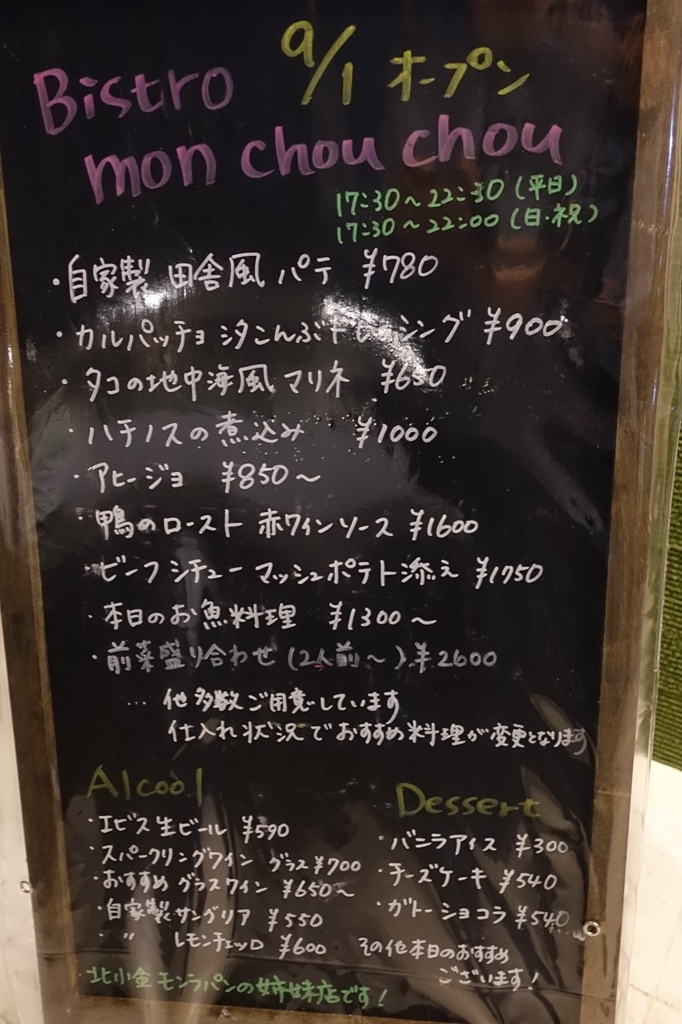 9/1 オープン
Bistro
mon chou chou
17:30～22:30(平日)
17:30～22:00(日・祝)
・自家製 田舎風 パテ ¥780
・カルパッチョ 汐こんぶドレッシング ¥900
・タコの地中海風マリネ ¥650
・ハチノスの煮込み ¥1000
・アヒージョ ¥850～
・鴨のロースト 赤ワインソース ¥1600
・ビーフシチュー マッシュポテト添え ¥1750
・本日のお魚料理 ¥1300～
・前菜盛り合わせ(2人前～) ¥2600
… 他多数ご用意しています
仕入れ状況でおすすめ料理が変更となります
Alcool
・エビス生ビール ¥590
・スパークリングワイン グラス¥700
・おすすめ グラスワイン ¥650～
・自家製サングリア ¥550
・ 〃 レモンチェッロ ¥600
Dessert
・バニラアイス ¥300
・チーズケーキ ¥540
・ガトーショコラ ¥540
その他本日のおすすめ
ございます!
北小金 モンラパンの姉妹店です!